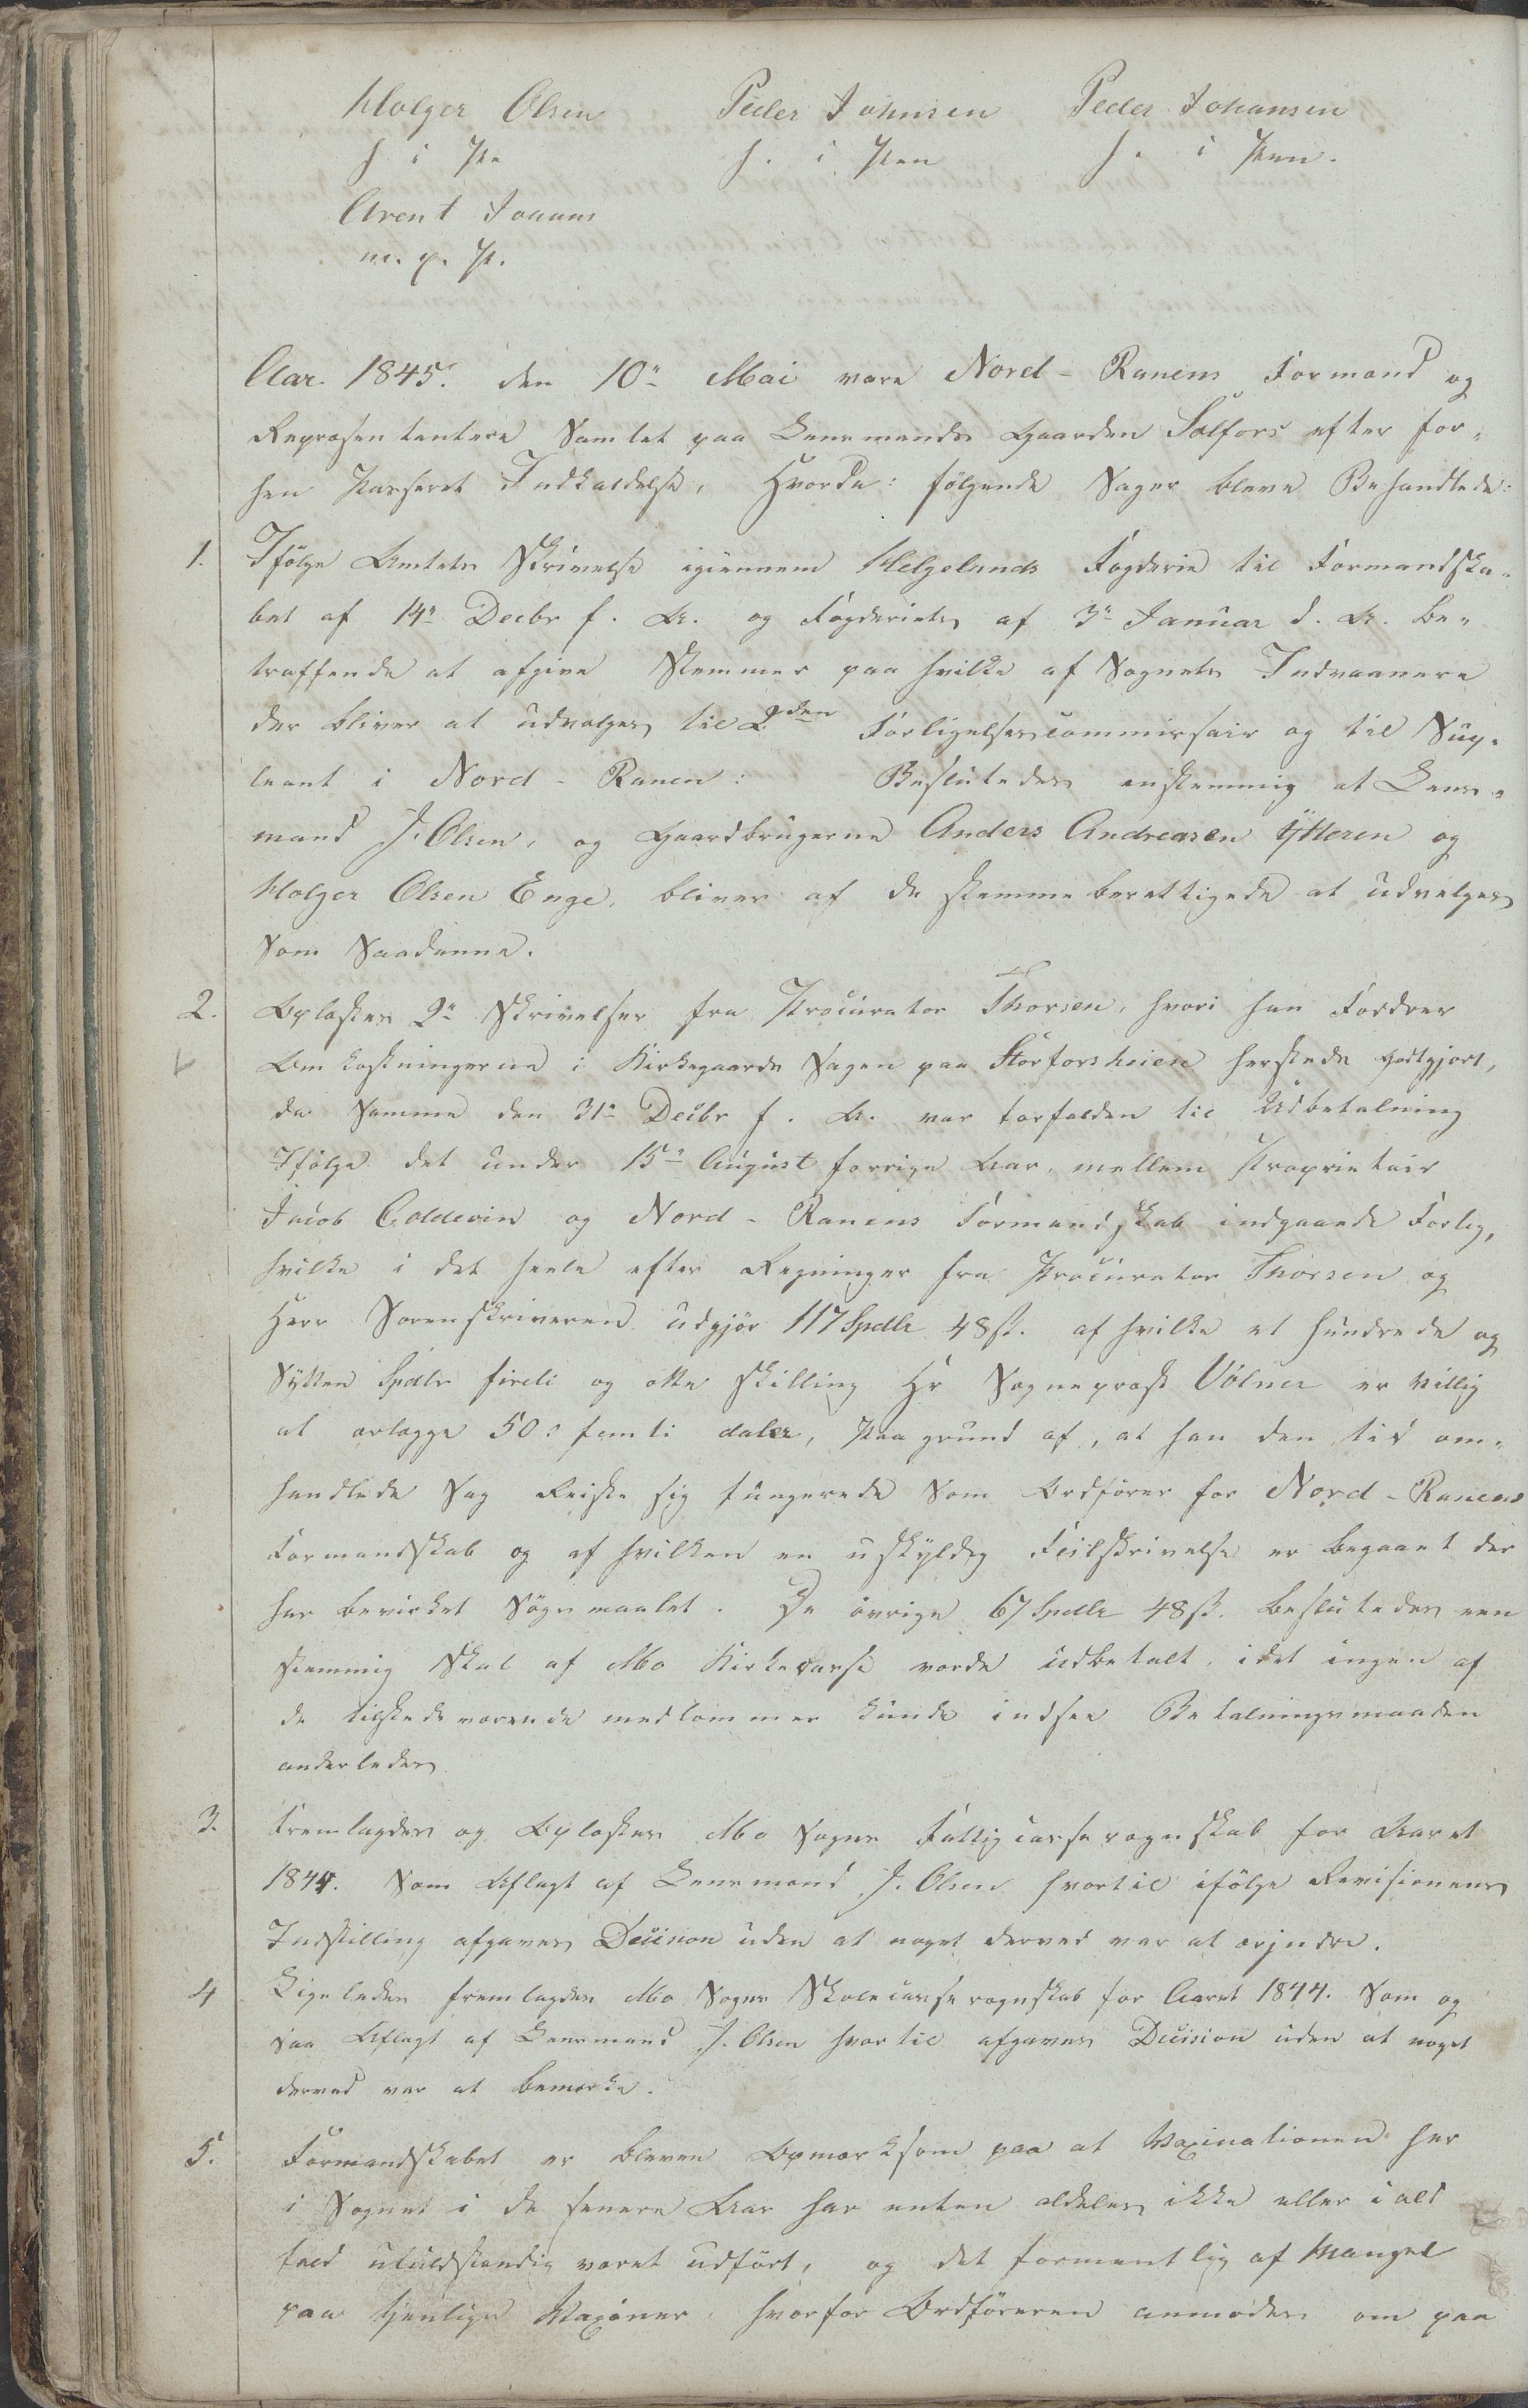 Holger Olsen Peder Johnsen Peder Johansen
h i Pe h. i Pen h. i Pen.
Arent Joauns
m. p. P.
Aar 1845. den 10de Mai vare Nord-Ranens Formænd og
Repræsentantere Samlet paa Lensmands Gaarden Sælfors efter for„
hen Passeret Indkaldelse, Hvorda: følgende Sager bleve Behandlede:
1. Ifølge Amtets Skrivelse igiennem Helgelands Fogderie til Formandska„
bet af 14de Decbr f. A. og Fogderiets af 3de Januar d. A. be„
træffende at afgive Stemmer paa hvilke af Sognets Indvaanere
der bliver at udvælges til 2den Forligelsescommissair og til Sup„
leant i Nord-Ranen: Besluttedes enstemmig at Lens„
mand J. Olsen, og Gaardbrugerne Anders Andreasen Ytteren og
Holger Olsen Enge, bliver af de stemmeberettigede at udvælges
som Saadanne.
2. Oplæstes 2de Skrivelser fra Procurator Thorsen, hvori han Fordrer
Omkostningerne i Kirkegaards Sagen paa Storforsheien herstede Godtgjort,
da Samme den 31te Decbr f. A. var forfalden til Udbetalning
Ifølge det under 15de August forrige Aar, mellem Proprietair
Jacob Coldevin og Nord-Ranens Formandskab indgaaede Forlig,
hvilke i det heele efter Regninger fra Procurator Thorsen og
Herr Sorenskriveren udgjør 117 Spdlr 48 ß. af hvilke et hundrede og
Sytten Spdlr fireti og otte skilling Hr Sogneprest Vólner er Villig
at erlægge 50: femti daler, Paa grund af, at han den tid om„
handlede Sag Reiste sig fungerede Som Ordfører for Nord-Ranens
Formandskab og af hvilken en uskyldig Feilskrivelse er begaaet der
har bevirket Søgsmaalet. De øvrige 67 Spdlr 48 ß. besluttedes een
stemmig Skal af Mo Kirkecasse vorde Udbetalt, idet ingen af
de tilstedeværende medlemmer kunde indsee Betalningsmaaden
anderledes
3. Fremlagdes og Oplæstes Mo Sogns Fattigcasseregnskab for Aaret
1844. Som Aflagt af Lensmand J. Olsen hvortil ifølge Revisionens
Indstilling afgaves Decision uden at noget derved var at erindre.
4 Ligeledes fremlagdes Mo Sogns Skolecasseregnskab for Aaret 1844. Som og
saa Aflagt af Lensmand J. Olsen hvortil afgaves Decision uden at noget
derved var at bemærke.
5. Formandskabet er bleven Opmærksom paa at Vaxinationen her
i Sognet i de senere Aar har enten aldeles ikke eller i alt
fald ufuldstændig været udført, og det formentlig af Mangel
paa tjenlige Vaxiner, hvorfor Ordføreren anmodes om paa